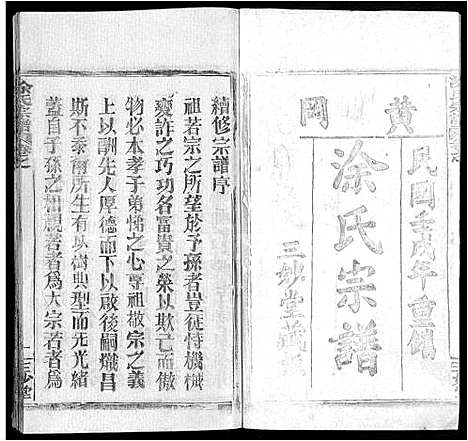 黄岡
民國壬戌年重修
涂氏宗譜
三妙堂藏
續修宗譜序
祖若宗之所望於予孫者豈徒恃機械
變詐之巧功名富貴之榮以欺亡而傲
物必本孝子弟悌之心尊祖敬宗之義
上以酬先人厚德而下以啟後嗣熾昌
斯不忝爾所生有以樹典型而光先緒
蓋自子孫之相親若者為大宗若者為